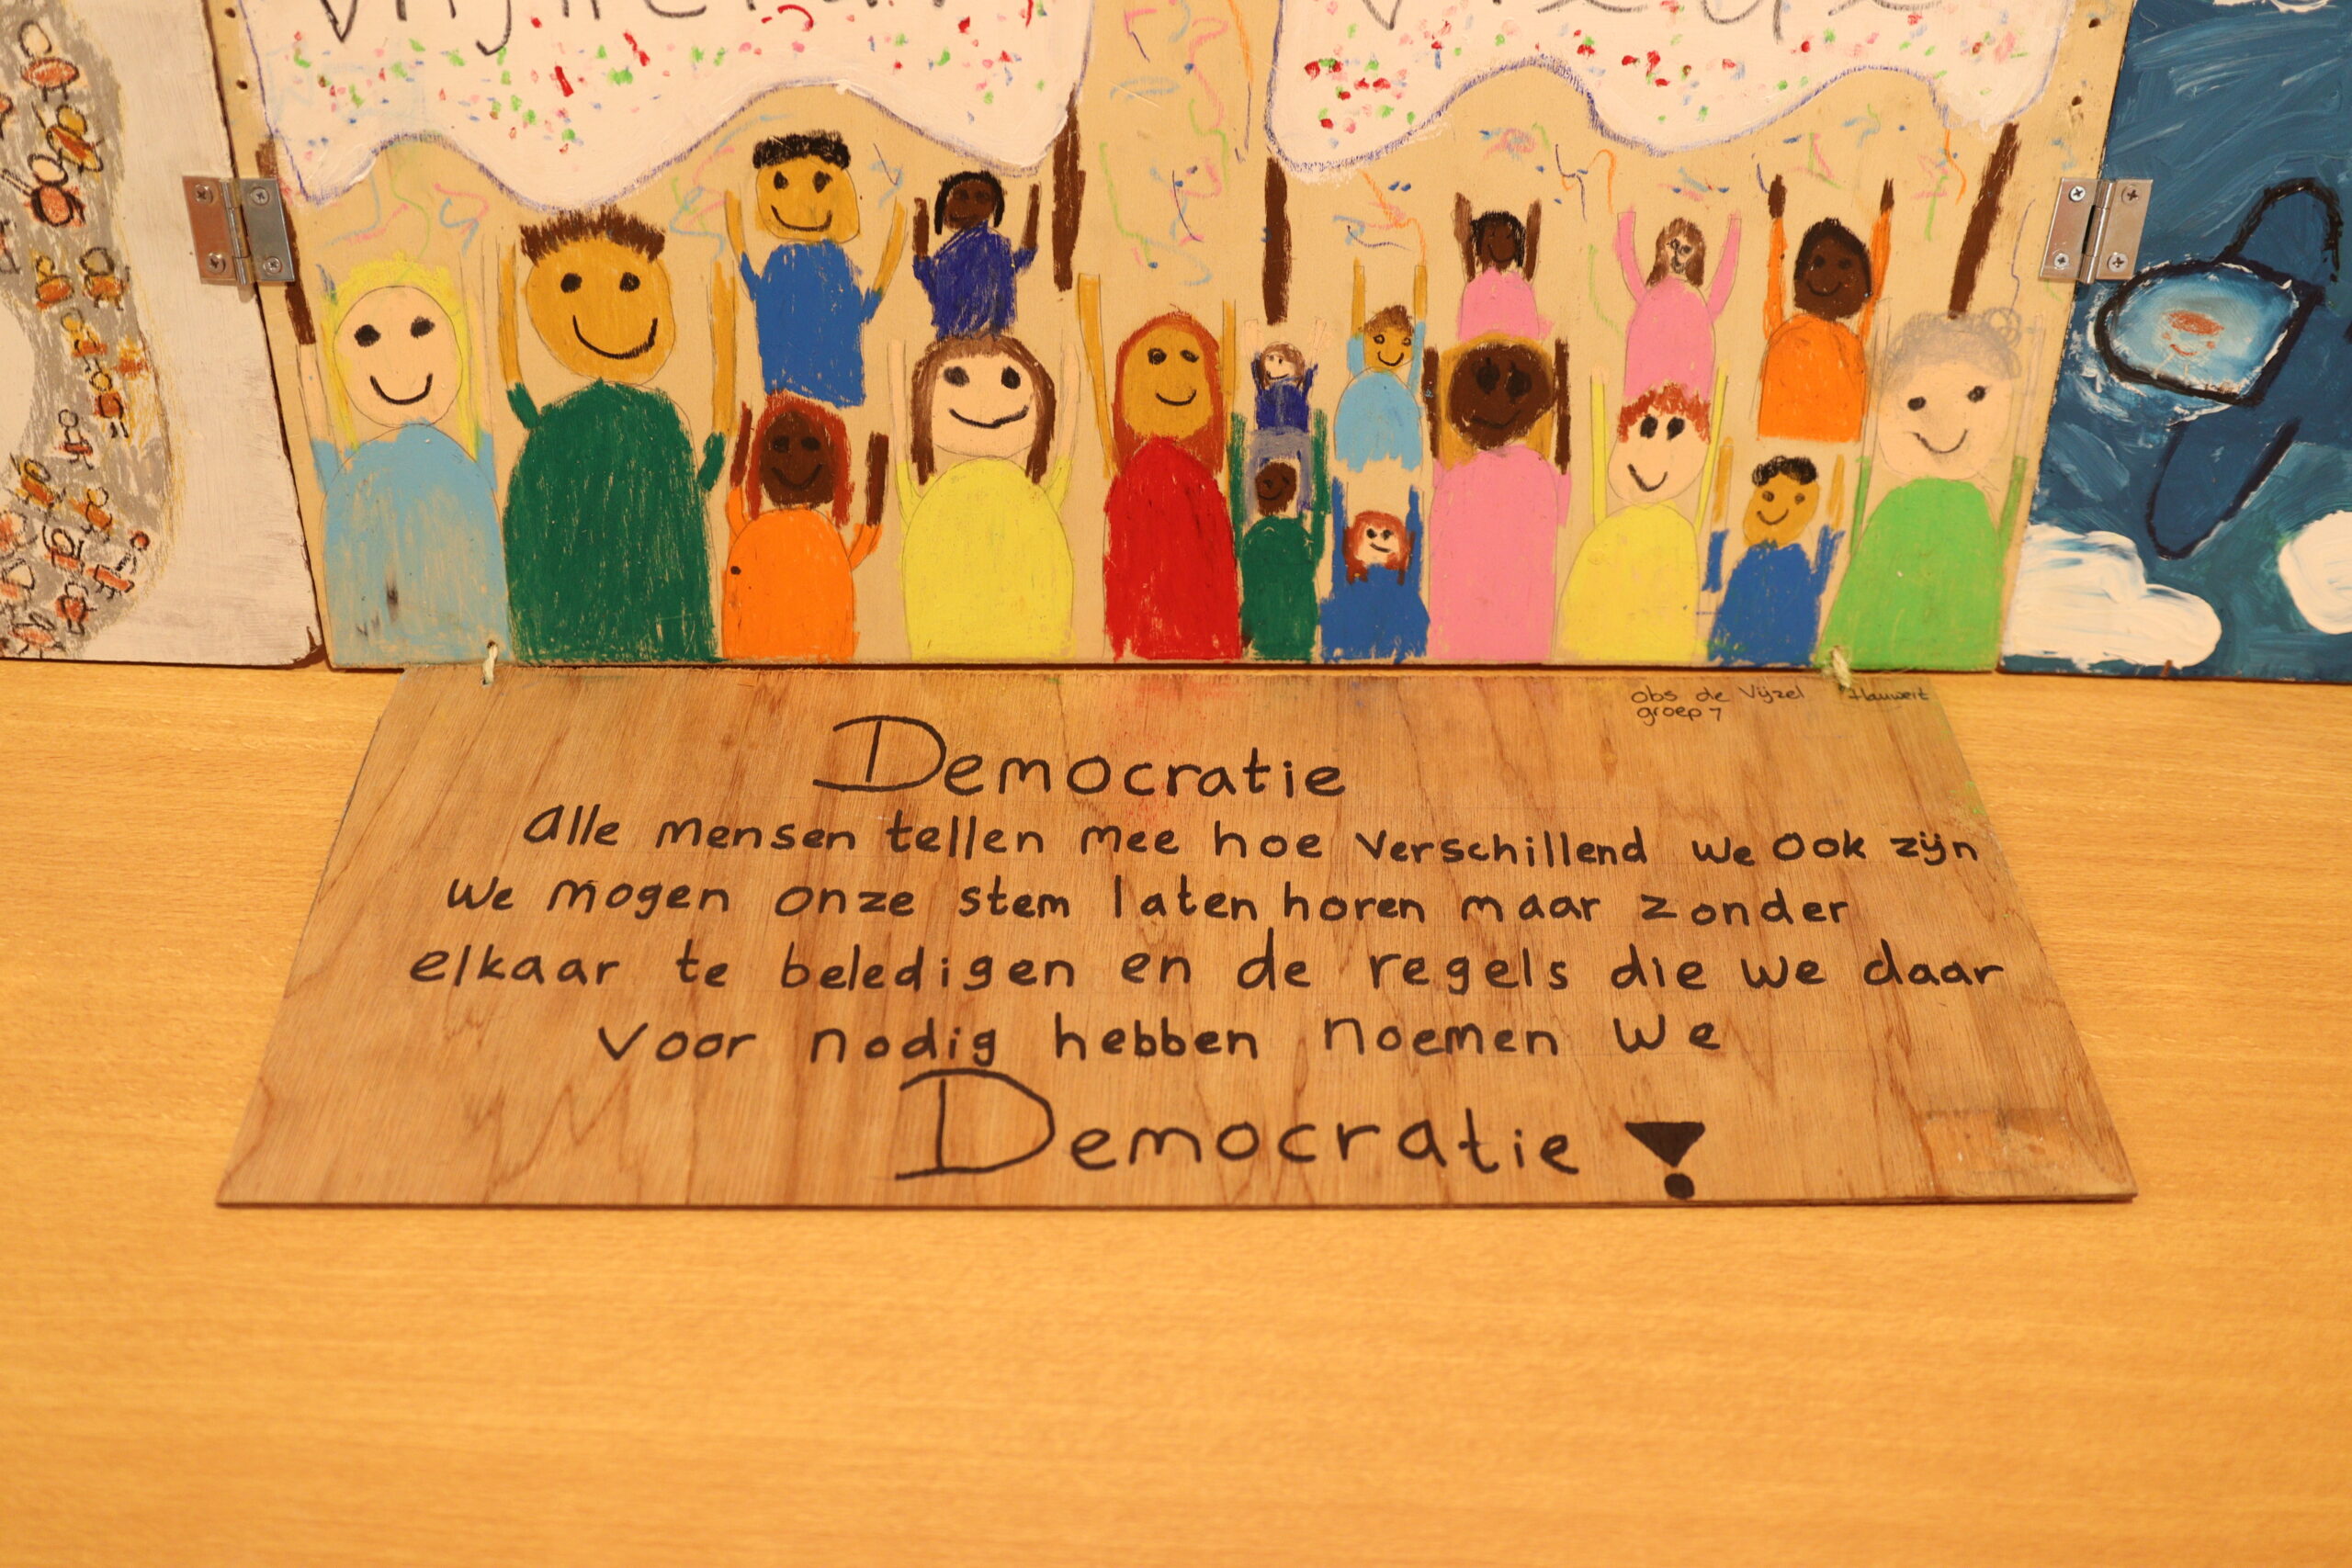 obs de Vijzel Hauwert
groep 7
Democratie
Alle mensen tellen mee hoe verschillend we ook zijn
We mogen onze stem laten horen maar zonder
elkaar te beledigen en de regels die we daar
voor nodig hebben noemen we
Democratie !